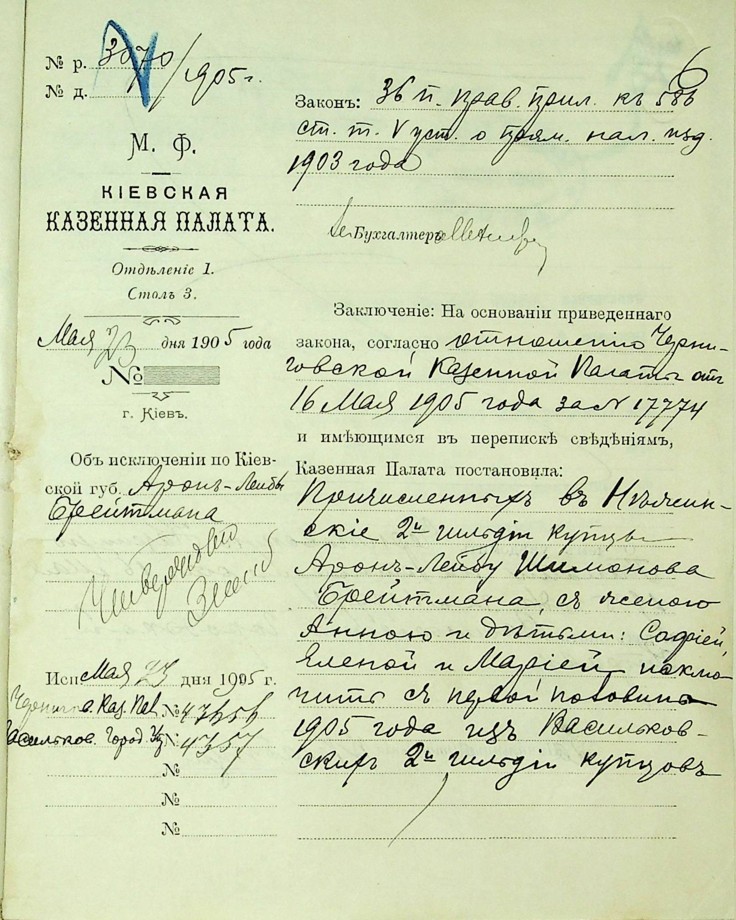 № р. 3070/1905 г.
№ д.
М. Ф.
КІЕВСКАЯ
КАЗЕННАЯ ПАЛАТА.
Отдѣленіе 1.
Столъ 3.
Мая 23 дня 1905 года
№
г. Кіевъ.
Объ исключеніи по Кіев-
ской губ. Аронъ-Лейбы
Брейтмана
Исп. Мая 23 дня 1905 г.
Каз. Пал. №
Васильков. Город. №4357
№
№
№
6
Законъ: 36 п. прав. прил. къ
ст. т. V уст. о прям. нал. изд.
1903 года
Бухгалтеръ
Заключеніе: На основаніи приведеннаго
закона, согласно отношенію Черни-
говской Казенной Палаты отъ
16 Мая 1905 года за № 17774
и имѣющимся въ перепискѣ свѣдѣніямъ,
Казенная Палата постановила:
Причисленныхъ въ Нѣжин-
скіе 2й гильдіи купцы
Аронъ-Лейбу Шимонова
Брейтмана, съ женою
Анною и дѣтьми: Софіей,
Еленой и Маріей исклю-
чить съ первой половины
1905 года изъ Васильков-
скихъ 2й гильдіи купцовъ